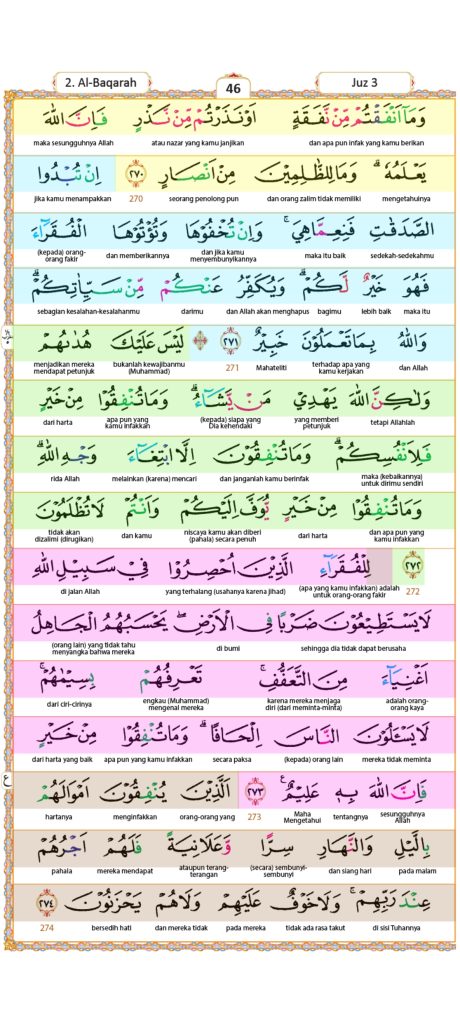 2. Al-Baqarah 46 Juz 3
وَمَآ اَنْفَقْتُمْ مِّنْ نَّفَقَةٍ اَوْ نَذَرْتُمْ مِّنْ نَّذْرٍ فَاِنَّ اللّٰهَ
dan apa pun infak yang kamu berikan atau nazar yang kamu janjikan maka sesungguhnya Allah
يَعْلَمُهٗ ۗ وَمَا لِلظّٰلِمِيْنَ مِنْ اَنْصَارٍ ٢٧٠ اِنْ تُبْدُوا
mengetahuinya dan orang zalim tidak memiliki seorang penolong pun 270 jika kamu menampakkan
الصَّدَقٰتِ فَنِعِمَّا هِيَ ۚ وَاِنْ تُخْفُوْهَا وَتُؤْتُوْهَا الْفُقَرَاۤءَ
sedekah-sedekahmu maka itu baik dan jika kamu menyembunyikannya dan memberikannya (kepada) orang-orang fakir
فَهُوَ خَيْرٌ لَّكُمْ ۗ وَيُكَفِّرُ عَنْكُمْ مِّنْ سَيِّاٰتِكُمْ ۗ
maka itu lebih baik bagimu dan Allah akan menghapus darimu sebagian kesalahan-kesalahanmu
وَاللّٰهُ بِمَا تَعْمَلُوْنَ خَبِيْرٌ ٢٧١ ۞ لَيْسَ عَلَيْكَ هُدٰىهُمْ
dan Allah terhadap apa yang kamu kerjakan Mahateliti 271 bukanlah kewajibanmu (Muhammad) menjadikan mereka mendapat petunjuk
وَلٰكِنَّ اللّٰهَ يَهْدِيْ مَنْ يَّشَاۤءُ ۗ وَمَا تُنْفِقُوْا مِنْ خَيْرٍ
tetapi Allahlah yang memberi petunjuk (kepada) siapa yang Dia kehendaki apa pun yang kamu infakkan dari harta
فَلِاَنْفُسِكُمْ ۗ وَمَا تُنْفِقُوْنَ اِلَّا ابْتِغَاۤءَ وَجْهِ اللّٰهِ ۗ
maka (kebaikannya) untuk dirimu sendiri dan janganlah kamu berinfak melainkan (karena) mencari rida Allah
وَمَا تُنْفِقُوْا مِنْ خَيْرٍ يُّوَفَّ اِلَيْكُمْ وَاَنْتُمْ لَا تُظْلَمُوْنَ
dan apa pun yang kamu infakkan dari harta niscaya kamu akan diberi (pahala) secara penuh dan kamu tidak akan dizalimi (dirugikan)
٢٧٢ لِلْفُقَرَاۤءِ الَّذِيْنَ اُحْصِرُوْا فِيْ سَبِيْلِ اللّٰهِ
272 (apa yang kamu infakkan) adalah untuk orang-orang fakir yang terhalang (usahanya karena jihad) di jalan Allah
لَا يَسْتَطِيْعُوْنَ ضَرْبًا فِى الْاَرْضِ ۖ يَحْسَبُهُمُ الْجَاهِلُ
sehingga dia tidak dapat berusaha di bumi (orang lain) yang tidak tahu menyangka bahwa mereka
اَغْنِيَاۤءَ مِنَ التَّعَفُّفِ ۚ تَعْرِفُهُمْ بِسِيْمٰهُمْ ۚ
adalah orang-orang kaya karena mereka menjaga diri (dari meminta-minta) engkau (Muhammad) mengenal mereka dari ciri-cirinya
لَا يَسْـَٔلُوْنَ النَّاسَ اِلْحَافًا ۗ وَمَا تُنْفِقُوْا مِنْ خَيْرٍ
mereka tidak meminta (kepada) orang lain secara paksa apa pun yang kamu infakkan dari harta yang baik
فَاِنَّ اللّٰهَ بِهٖ عَلِيْمٌ ۚ ٢٧٣ اَلَّذِيْنَ يُنْفِقُوْنَ اَمْوَالَهُمْ
sesungguhnya Allah tentangnya Maha Mengetahui 273 orang-orang yang menginfakkan hartanya
ع
بِالَّيْلِ وَالنَّهَارِ سِرًّا وَّعَلَانِيَةً فَلَهُمْ اَجْرُهُمْ
pada malam dan siang hari (secara) sembunyi-sembunyi ataupun terang-terangan mereka mendapat pahala
عِنْدَ رَبِّهِمْ ۚ وَلَا خَوْفٌ عَلَيْهِمْ وَلَا هُمْ يَحْزَنُوْنَ ٢٧٤
di sisi Tuhannya tidak ada rasa takut pada mereka dan mereka tidak bersedih hati 274